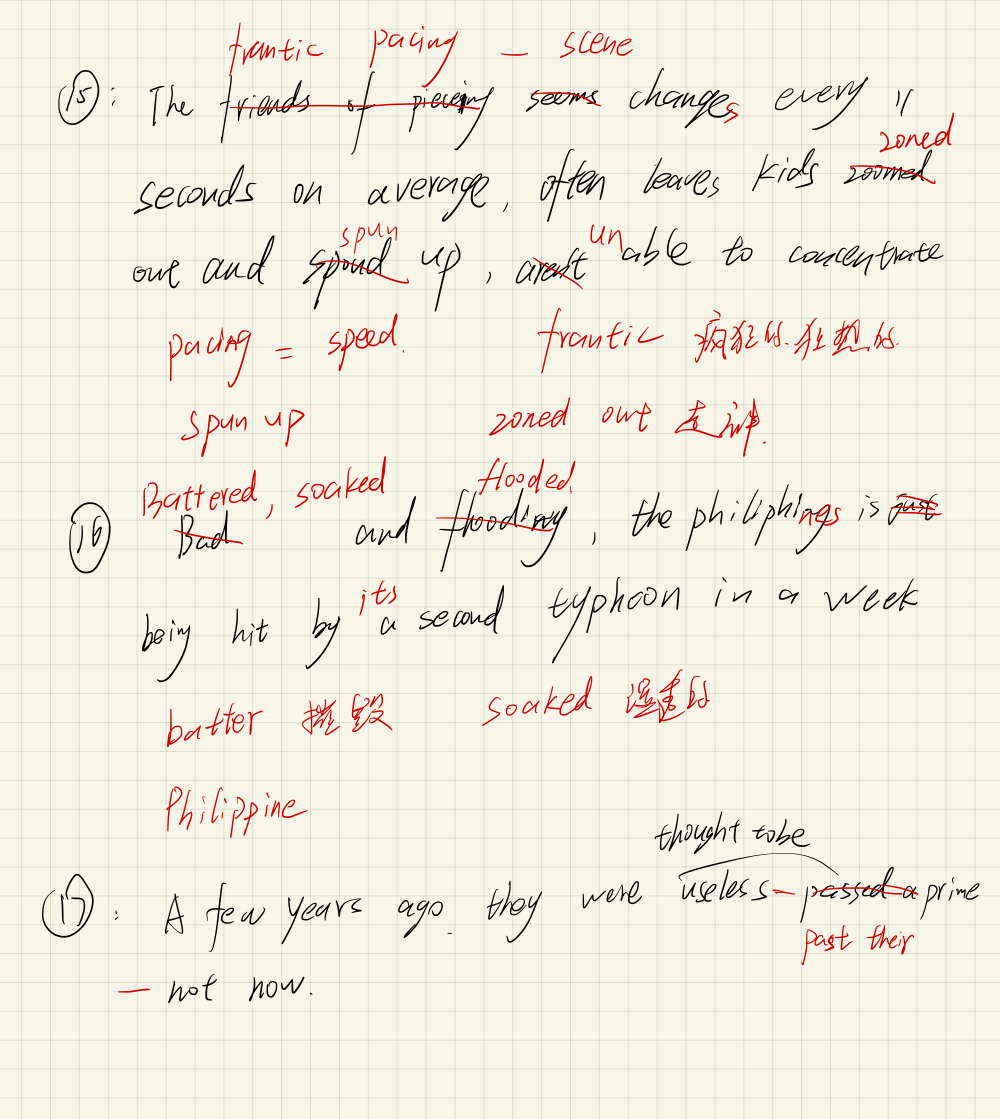 frantic pacing — scene
15: The friends of piecing seems changes every 11
zoned
seconds on average, often leaves kids zoomed
spun un
out and spond up, aren't able to concentrate
pacing = speed. frantic 疯狂的.狂热的.
spun up zoned out 走神.
Battered, soaked flooded
16 Bad and flooding, the philiphines is just
its
being hit by a second typhoon in a week
batter 摧毁 soaked 湿透的
Philippine
thought to be
17: A few years ago they were useless — passed a prime
past their
— not now.